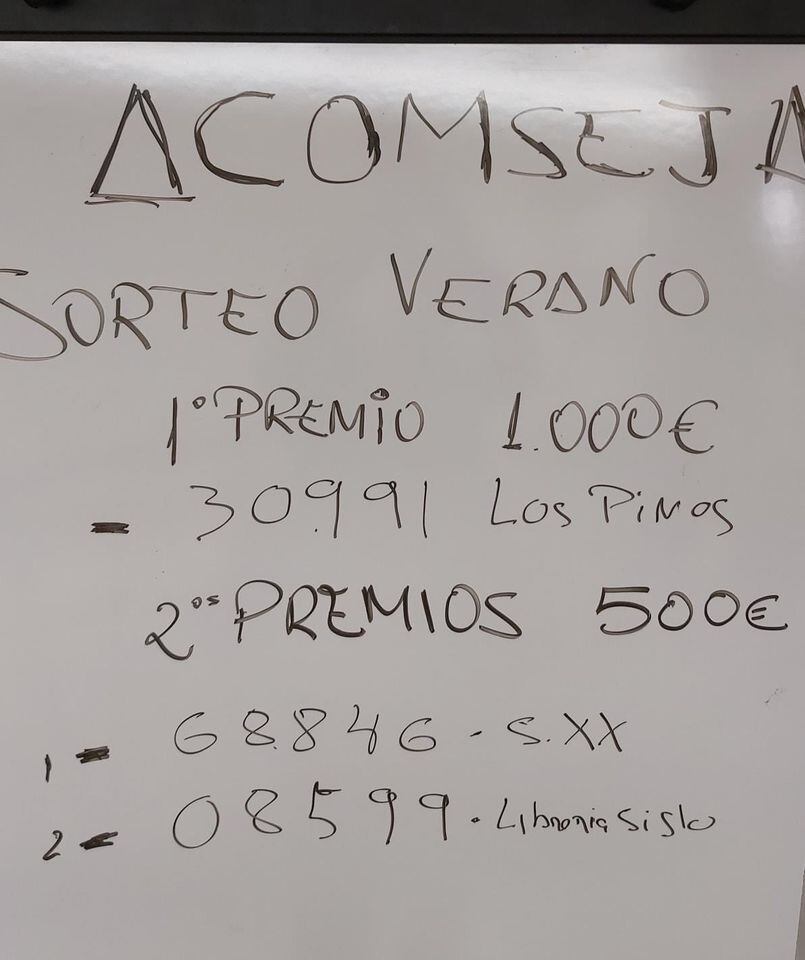 ACOMSEJA
SORTEO VERANO
1º PREMIO 1.000€
- 30.991 Los Pinos
2ºs PREMIOS 500€
1 - 68.846 - S.XX
2 - 08599 - Libreria Siglo